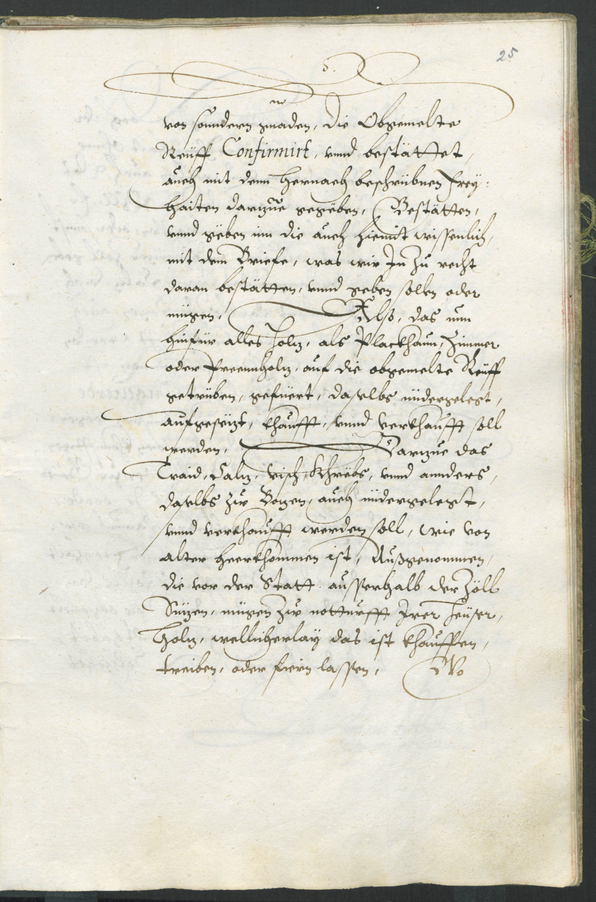 25
von sonndern gnaden, die Obgemelte
Reüff Confirmirt, vnnd bestättet,
auch mit denn hernach beschribnen frey¬
haiten darzue gegeben, Bestätten,
vnnd geben im die auch hiemit wissenlich,
mit dem Briefe, was wir In zu recht
daran bestätten, vnnd geben sollen oder
mügen, Also, das nun
hinfür alles Holtz, als Plackhaun, Zimmer
oder Prennholtz, auf die obgemelte Reüff
getriben, gefüert, daselbs nidergelegt,
aufgesetzt, khaufft, vnnd verkhaufft soll
werden, Darzue das
Traid, Saltz, visch, Schreebs, vnnd annders,
daselbs zu Bozen, auch nidergelegt,
vnnd verkhaufft werden soll, wie von
alter heerkhommen ist, Außgenommen,
die vor der Statt ausserhalb der Zöll
Sitzen, mügen zu notturfft Irer Heüser,
Holtz, wellicherlay das ist khauffen,
treiben, oder füern lassen, Wo